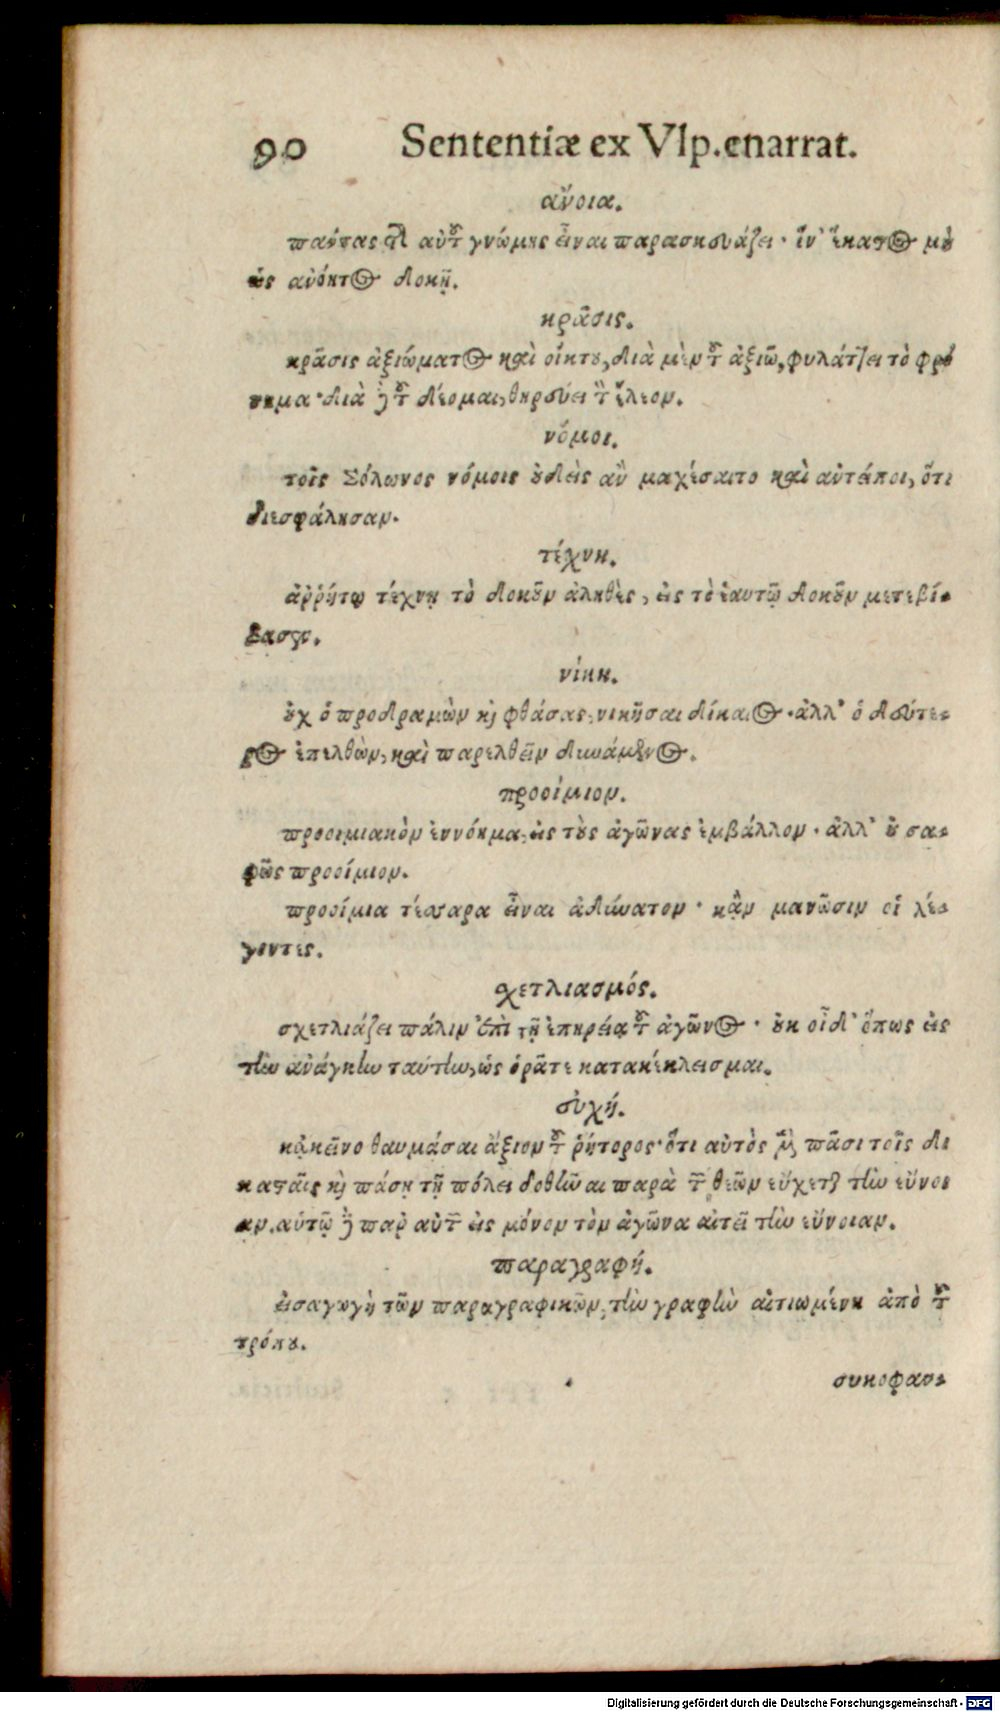 90 Sententiæ ex Vlp. enarrat.
ἄνοια.
πάντας τῆς αὐτοῦ γνώμης εἶναι παρασκευάζει· ἵν' ἕκαστος μὴ
ὡς ἀνόητος δοκῇ.
κρᾶσις.
κρᾶσις ἀξιώματος καὶ οἴκτου, διὰ μὲν τοῦ ἀξιῶ, φυλάττει τὸ φρό
νημα· διὰ δὲ τοῦ δέομαι, θηρεύει τὸν ἔλεον.
νόμοι.
τοῖς Σόλωνος νόμοις οὐδεὶς ἂν μαχέσαιτο καὶ ἀντείποι, ὅτι
διεσφάλησαν.
τέχνη.
ἀῤῥήτῳ τέχνῃ τὸ δοκοῦν ἀληθὲς, εἰς τὸ ἑαυτῷ δοκοῦν μετεβί-
βασε.
νίκη.
οὐχ ὁ προδραμὼν καὶ φθάσας, νικῆσαι δίκαιος· ἀλλ' ὁ δεύτε-
ρος ἐπελθὼν, καὶ παρελθεῖν δυνάμενος.
προοίμιον.
προοιμιακὸν ἐννόημα, εἰς τοὺς ἀγῶνας ἐμβάλλον· ἀλλ' οὐ σα-
φῶς προοίμιον.
προοίμια τέσσαρα εἶναι ἀδύνατον· κἂν μανῶσιν οἱ λέ-
γοντες.
σχετλιασμός.
σχετλιάζει πάλιν ἐπὶ τῇ ἐπηρείᾳ τοῦ ἀγῶνος· οὐκ οἶδ' ὅπως εἰς
τὴν ἀνάγκην ταύτην, ὡς ὁρᾶτε κατακέκλεισμαι.
εὐχή.
κἀκεῖνο θαυμάσαι ἄξιον τοῦ ῥήτορος· ὅτι αὐτὸς μὲν πᾶσι τοῖς δι
κασταῖς καὶ πάσῃ τῇ πόλει δοθῆναι παρὰ τῶν θεῶν εὔχεται τὴν εὔνοι
αν. αὑτῷ δὲ παρ αὐτῶν εἰς μόνον τὸν ἀγῶνα αἰτεῖ τὴν εὔνοιαν.
παραγραφή.
εἰσαγωγὴ τῶν παραγραφικῶν, τὴν γραφὴν αἰτιωμένη ἀπὸ τοῦ
τρόπου.
συκοφαν-
Digitalisierung gefördert durch die Deutsche Forschungsgemeinschaft - DFG